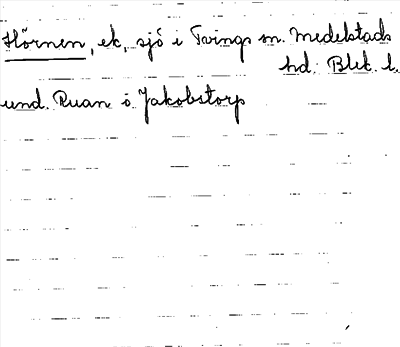 Hörnen, ek, sjö i Tvings sn. Medelstads
hd. Blek. l.
und. Ruan o. Jakobstorp